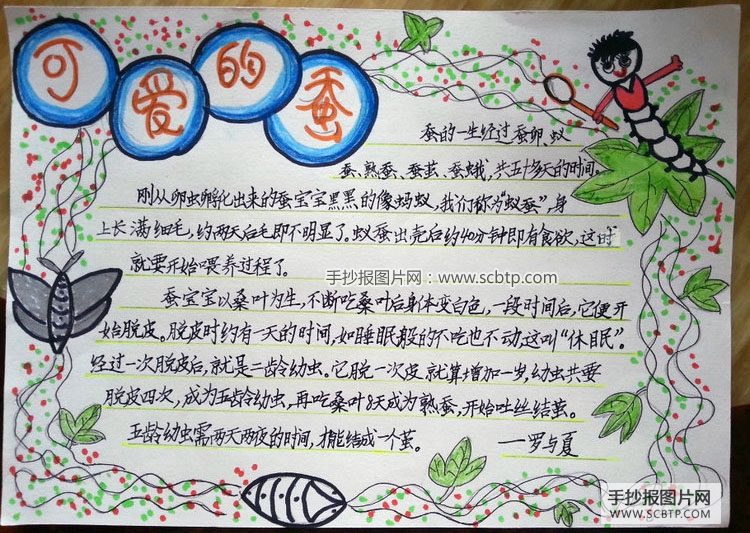 可爱的蚕
蚕的一生经过蚕卵、蚁
蚕、熟蚕、蚕茧、蚕蛾,共五十多天的时间。
刚从卵虫孵化出来的蚕宝宝黑黑的像蚂蚁,我们称为“蚁蚕”,身
上长满细毛,约两天后毛即不明显了。蚁蚕出壳后约40分钟即有食欲,这时
就要开始喂养过程了。
手抄报图片网:www.scbtp.com
蚕宝宝以桑叶为生,不断吃桑叶后身体变白色,一段时间后,它便开
始脱皮。脱皮时约有一天的时间,如睡眠般的不吃也不动,这叫“休眠”。
经过一次脱皮后,就是二龄幼虫。它脱一次皮就算增加一岁,幼虫共要
脱皮四次,成为五龄幼虫,再吃桑叶8天成为熟蚕,开始吐丝结茧。
五龄幼虫需两天两夜的时间,才能结成一个茧。
——罗与夏
手抄报图片网
SCBTP.COM